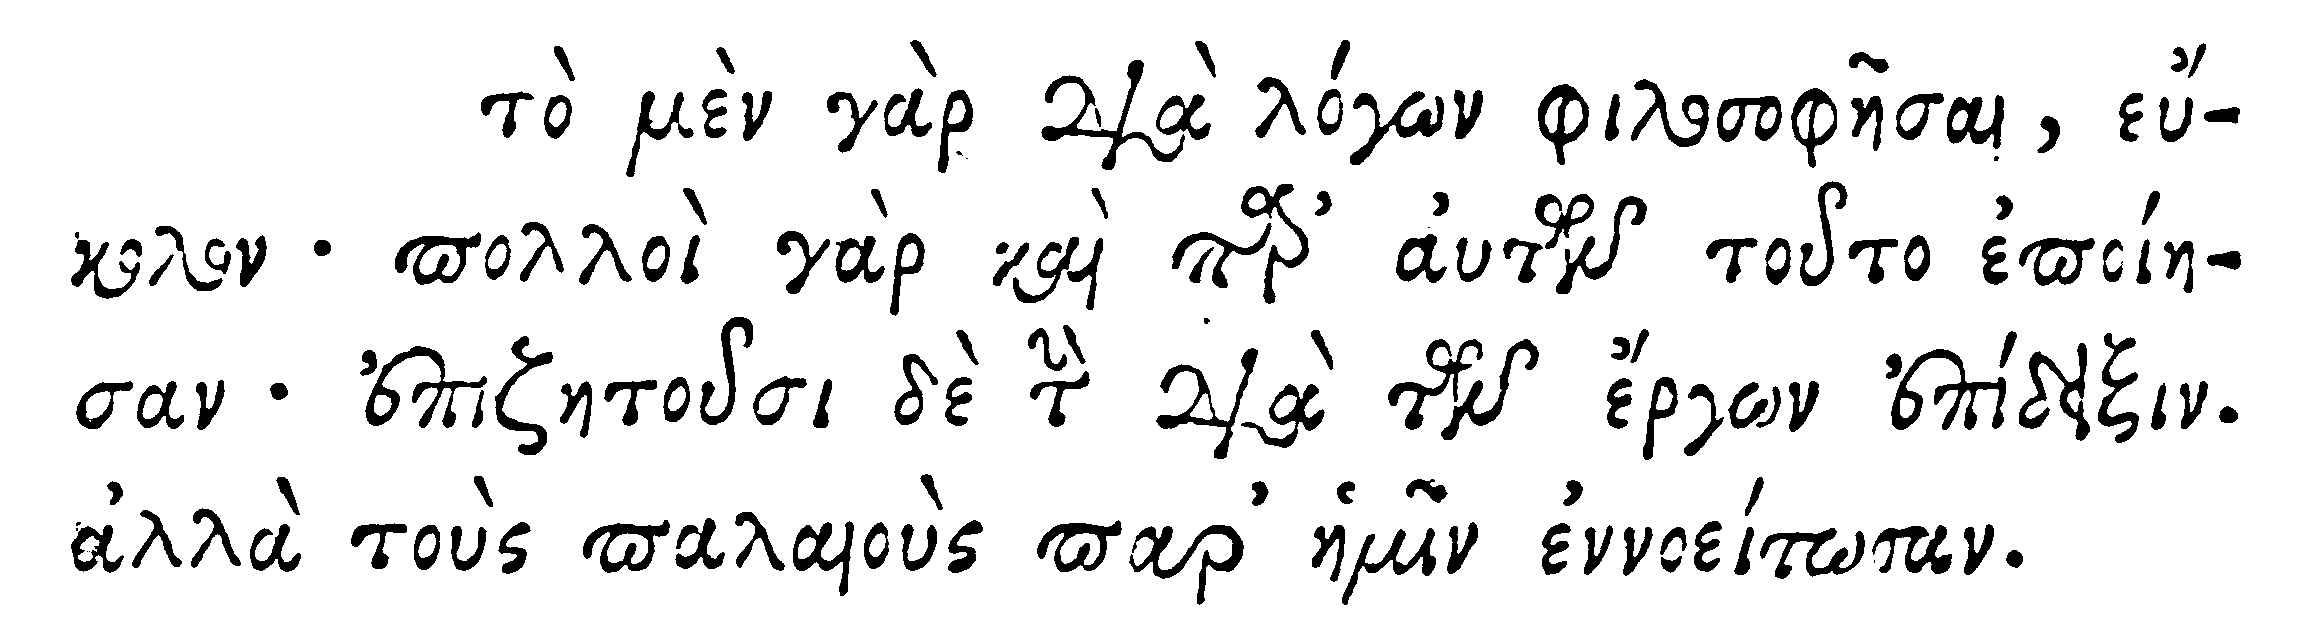 τὸ μὲν γὰρ διὰ λόγων φιλοσοφῆσαι, εὔ-
κολον· πολλοὶ γὰρ καὶ παρ’ αὐτῶν τοῦτο ἐποίη-
σαν· ἐπιζητοῦσι δὲ τὴν διὰ τῶν ἔργων ἐπίδειξιν.
ἀλλὰ τοὺς παλαιοὺς παρ’ ἡμῖν ἐννοείτωσαν.